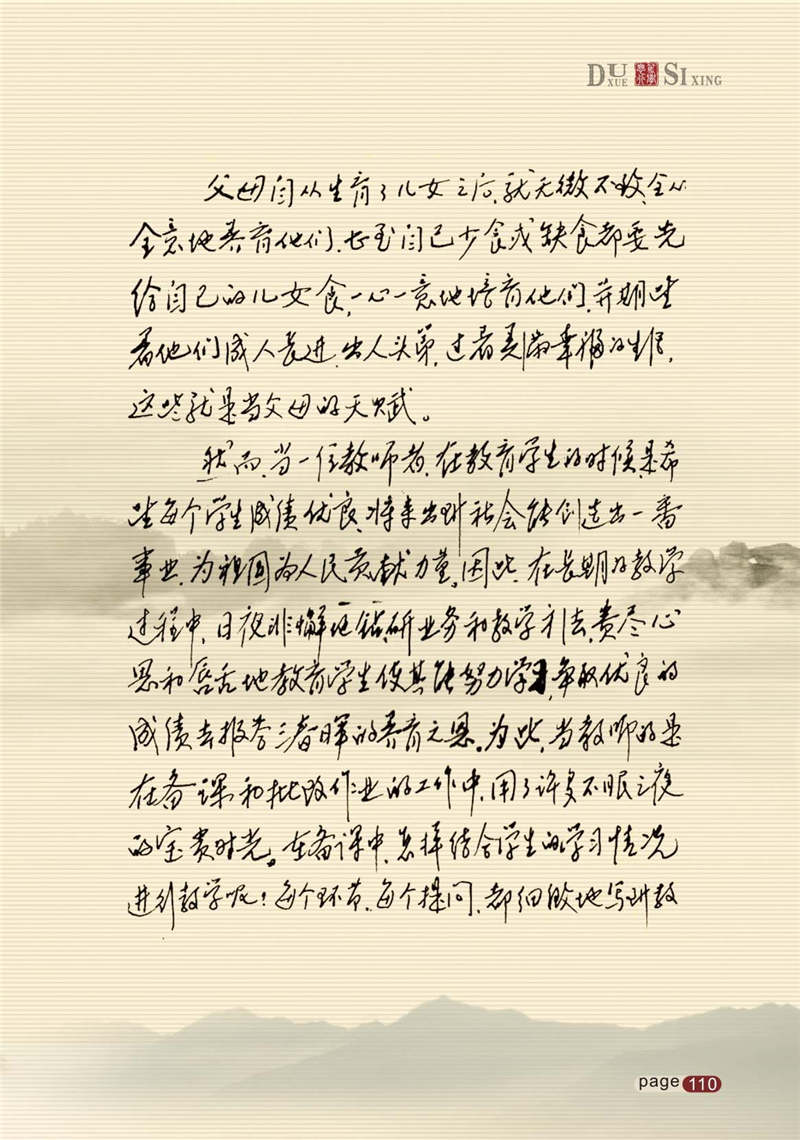 DU XUE SI XING
父母自从生育了儿女之后,就无微不致、全心
全意地养育他们,甚至自己少食或缺食都要先
给自己的儿女食,一心一意地培育他们,并期望
着他们成人长进、出人头第,过着美满幸福的生活,
这些就是当父母的天赋。
然而,当一任教师者,在教育学生的时候,是希
望每个学生成绩优良,将来出到社会能创造出一番
事业,为祖国为人民贡献力量。因此,在长期的教学
过程中,日夜非懈地钻研业务和教学方法,费尽心
思和唇舌地教育学生使其能努力学习,争取优良的
成绩去报答三春晖的养育之恩。为此,当教师的是
在备课和批改作业的工作中,用了许多不眠之夜
的宝贵时光。在备课中,怎样结合学生的学习情况
进行教学呢!每个环节,每个提问,都细致地写到教
page 110